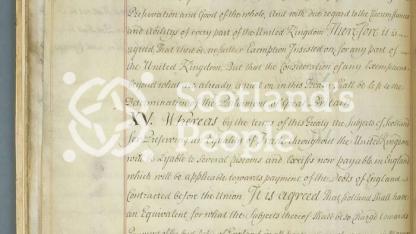 Preservation and Good of the whole, And with due regard to the Circumstances
and Abilitys of every part of the United Kingdom Therefore it is
agreed That there be no further Exemption Insisted on for any part of
the United Kingdom. But that the Consideration of any Exemptions
beyond what are already agreed on in this Treaty shall be left to the
Determination of the Parliament of Great Britain
XV. Whereas by the terms of this Treaty the Subjects of Scotland
for Preserving an Equality of Trade throughout the United Kingdom
will be lyable to several Customs and Excises now payable in England
which will be applicable towards payment of the Debts of England
Contracted before the Union. It is agreed That Scotland shall have
an Equivalent for what the Subjects thereof shall be so charged towards
Scotland's
People